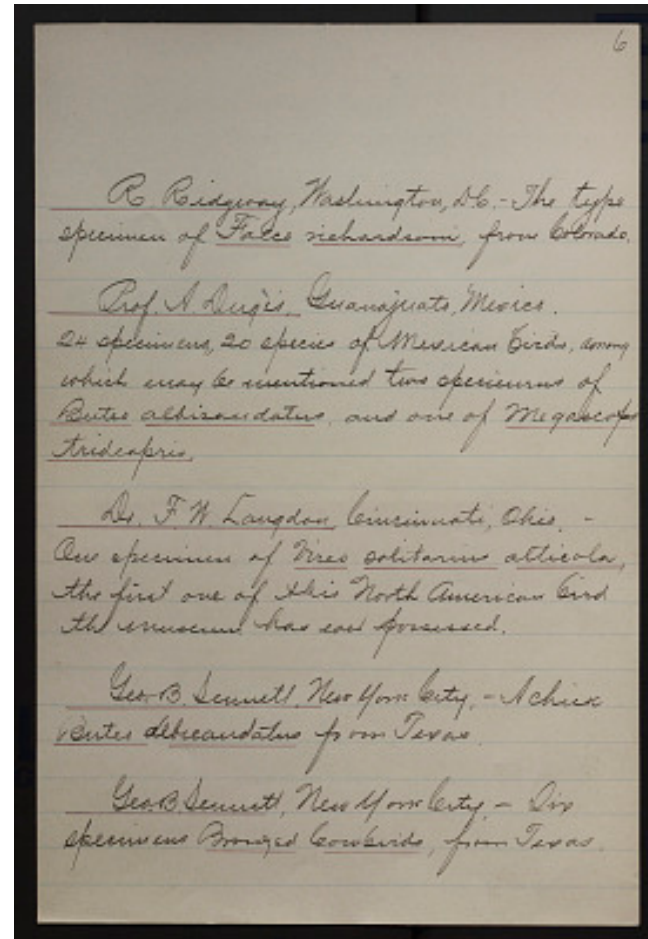 6
R Ridgway, Washington, D.C. - The type
specimen of Falco richardsoni, from Colorado.
Prof. A Dugès, Guanajuato, Mexico.
24 specimens, 20 species of Mexican birds, among
which may be mentioned two specimens of
Buteo albicaudatus, and one of Megascops
Dr. F. W. Langdon, Cincinnati, Ohio. -
One specimen of Vireo solitarius alticola,
the first one of this North American bird
the museum has ever possessed.
Geo. B. Sennett, New York City, - A chick
Buteo albicaudatus from Texas.
Geo. B. Sennett, New York City, - Six
specimens Bronzed Cowbirds, from Texas.